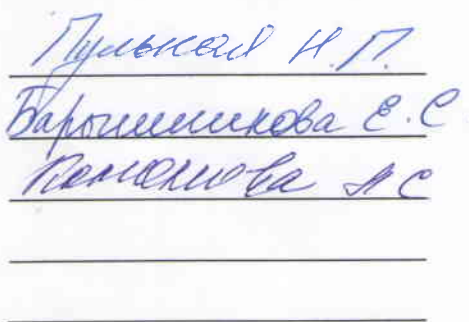 Пулькая Н.П.
Барышникова Е.С.
Кононова А С